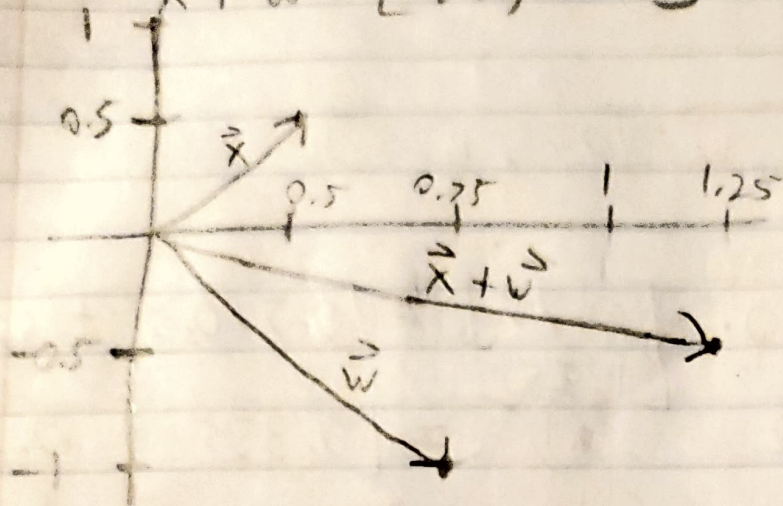 1
0.5
x⃗
0.5 0.75 1 1.25
x⃗ + w⃗
-0.5
w⃗
-1